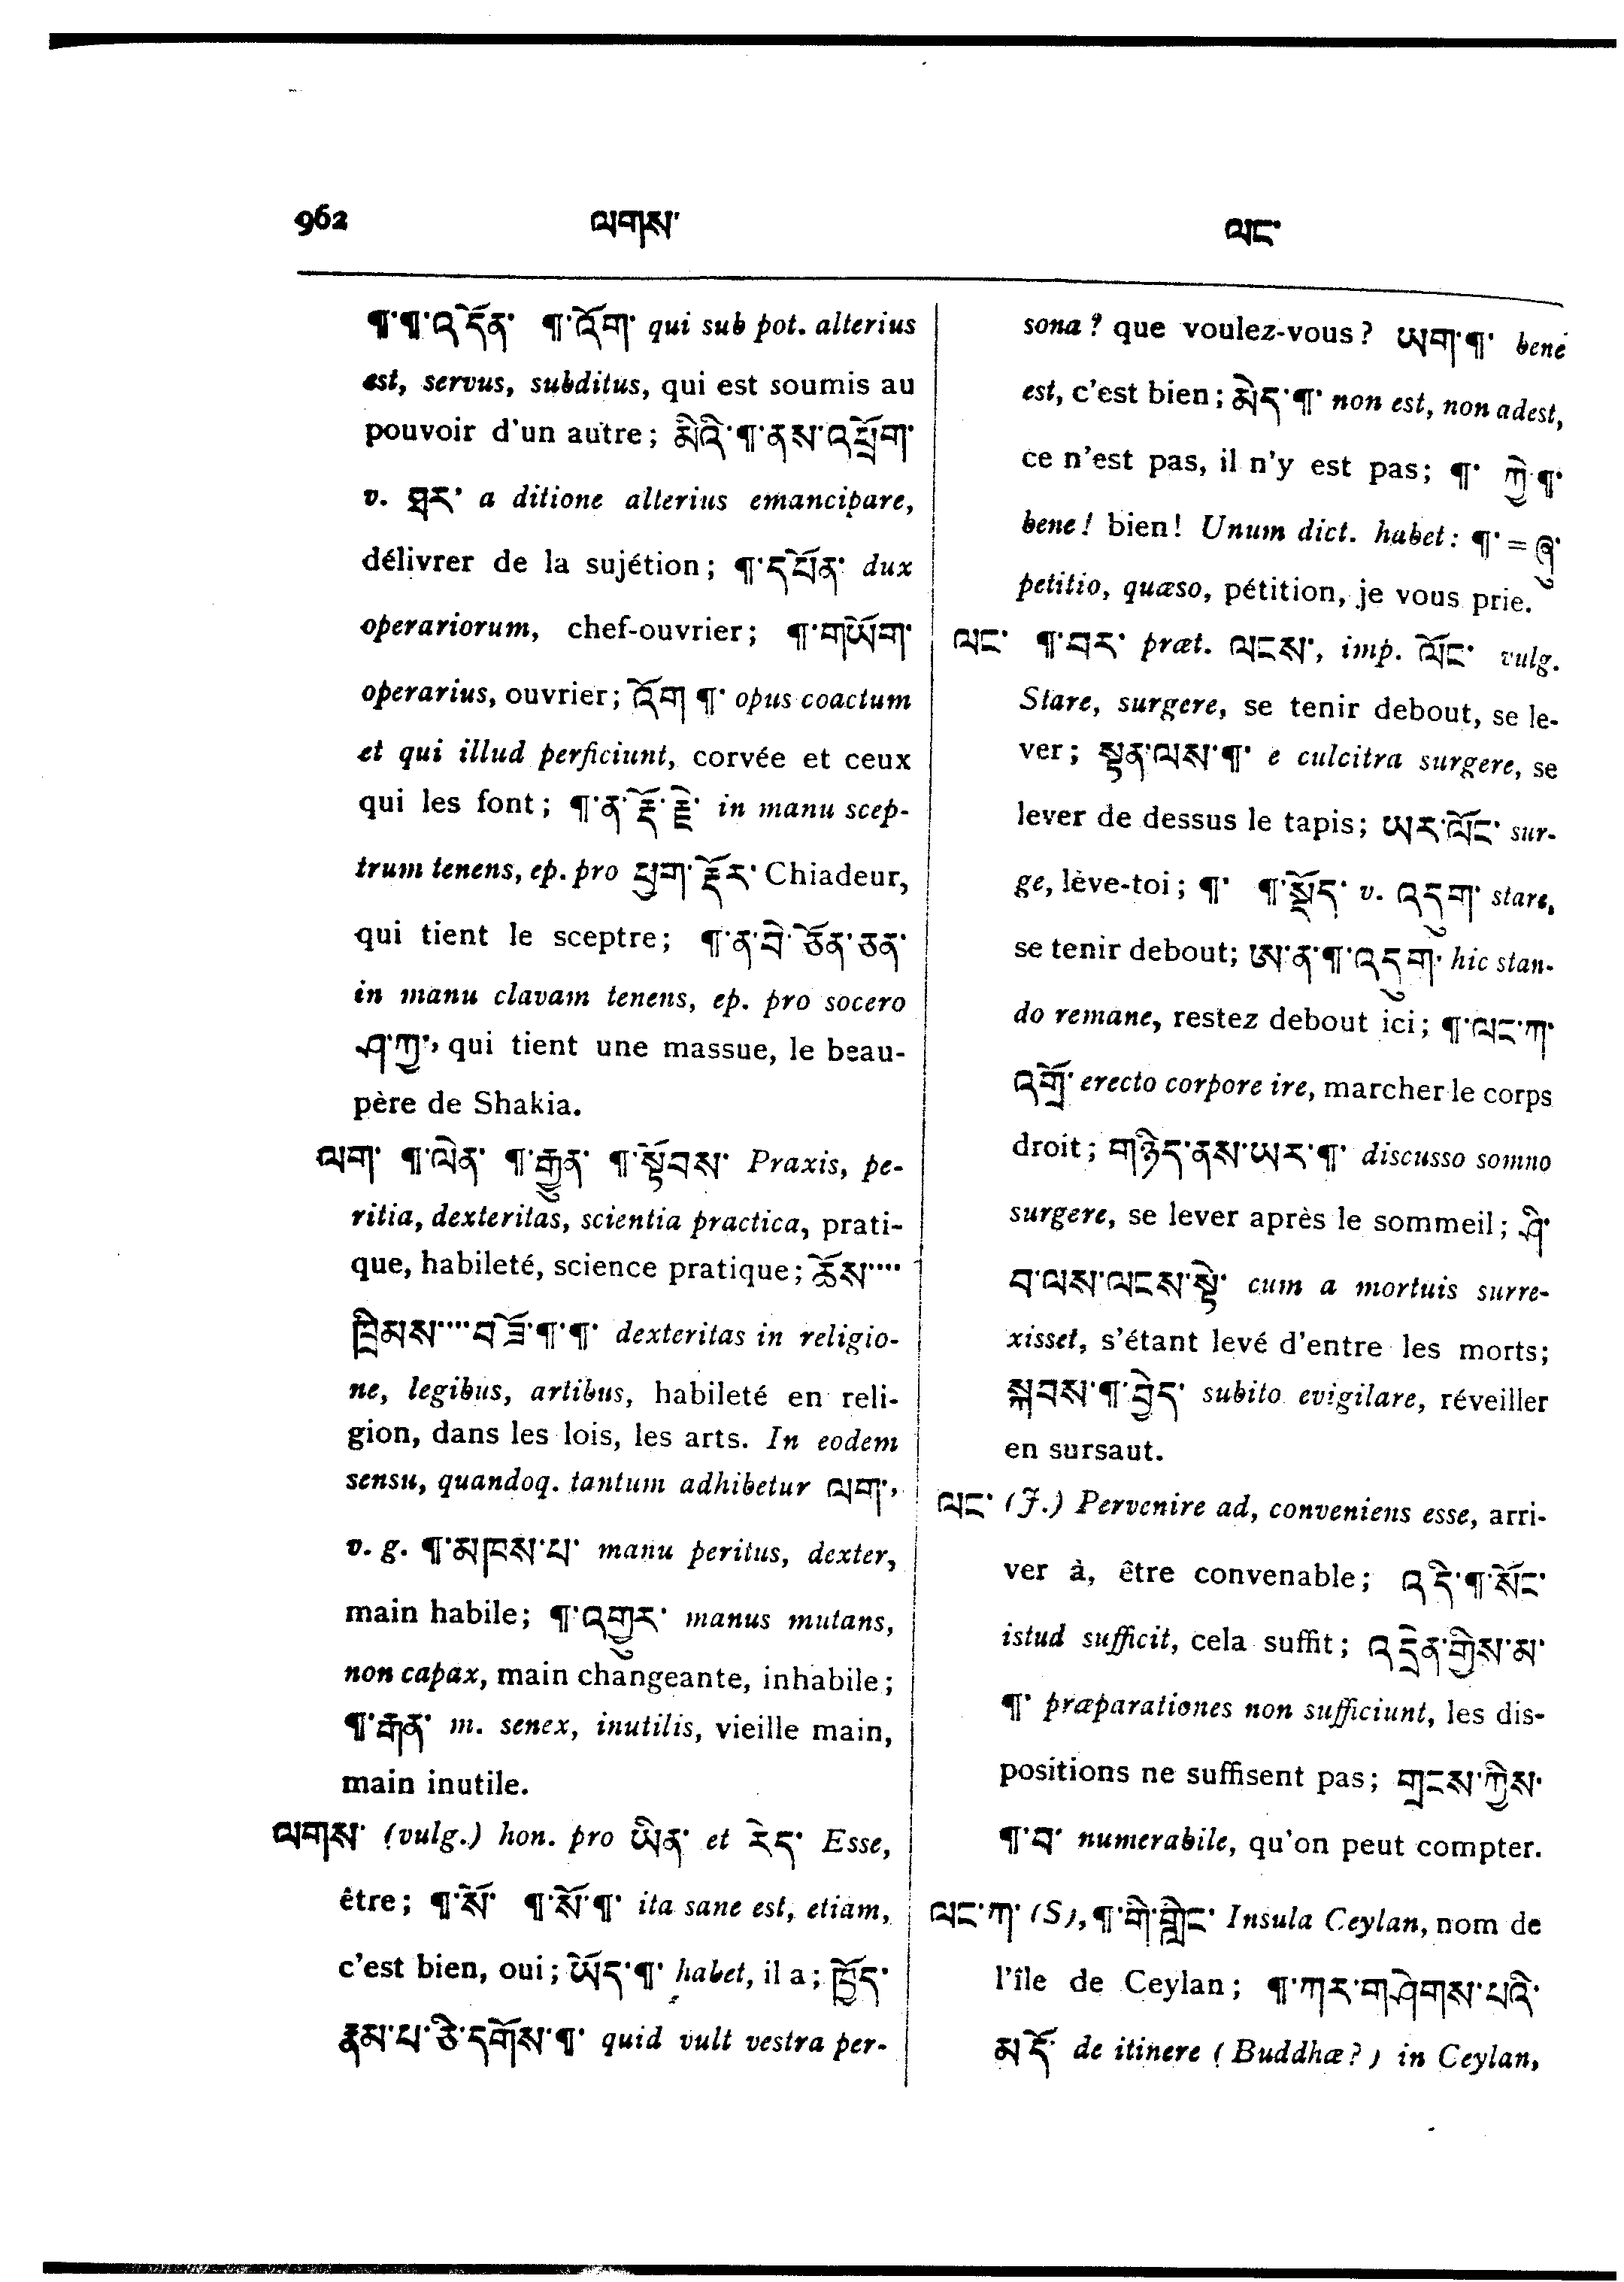 962 ལགས་ ལང་
¶་¶་འདོན་ ¶་འོག་ qui sub pot. alterius
est, servus, subditus, qui est soumis au
pouvoir d'un autre; མིའི་¶་ནས་འཕྲོག་
v. ཐར་ a ditione alterius emancipare,
délivrer de la sujétion; ¶་དཔོན་ dux
operariorum, chef-ouvrier; ¶་གཡོག་
operarius, ouvrier; འོག ¶་ opus coactum
et qui illud perficiunt, corvée et ceux
qui les font; ¶་ན་རྡོ་རྗེ་ in manu scep-
trum tenens, ep. pro ཕྱག་རྡོར་ Chiadeur,
qui tient le sceptre; ¶་ན་བེ་ཅོན་ཅན་
in manu clavam tenens, ep. pro socero
ཤ་ཀྱ་, qui tient une massue, le beau-
père de Shakia.
ལག་ ¶་ལེན་ ¶་རྒྱུན་ ¶་སྟོབས་ Praxis, pe-
ritia, dexteritas, scientia practica, prati-
que, habileté, science pratique; ཆོས་...
ཁྲིམས་...བཟོ་¶་¶་ dexteritas in religio-
ne, legibus, artibus, habileté en reli-
gion, dans les lois, les arts. In eodem
sensu, quandoq. tantum adhibetur ལག་,
v. g. ¶་མཁས་པ་ manu peritus, dexter,
main habile; ¶་འགྱུར་ manus mutans,
non capax, main changeante, inhabile;
¶་རྒན་ m. senex, inutilis, vieille main,
main inutile.
ལགས་ (vulg.) hon. pro ཡིན་ et རེད་ Esse,
être; ¶་སོ་ ¶་སོ་¶་ ita sane est, etiam,
c'est bien, oui; ཡོད་¶་ habet, il a; ཁྱོད་
རྣམ་པ་ཅི་དགོས་¶་ quid vult vestra per-
sona? que voulez-vous? ཡག་¶་ bene
est, c'est bien; མེད་¶་ non est, non adest,
ce n'est pas, il n'y est pas; ¶་ ཀྱེ་¶་
bene! bien! Unum dict. habet: ¶་ = ཞུ་
petitio, quæso, pétition, je vous prie.
ལང་ ¶་བར་ præt. ལངས་, imp. ལོང་ vulg.
Stare, surgere, se tenir debout, se le-
ver; སྟན་ལས་¶་ e culcitra surgere, se
lever de dessus le tapis; ཡར་ལོང་ sur-
ge, lève-toi; ¶་ ¶་སྡོད་ v. འདུག་ stare,
se tenir debout; ཨ་ན་¶་འདུག་ hic stan-
do remane, restez debout ici; ¶་ལང་ཀ་
འགྲོ་ erecto corpore ire, marcher le corps
droit; གཉིད་ནས་ཡར་¶་ discusso somno
surgere, se lever après le sommeil; ཤི་
བ་ལས་ལངས་སྟེ་ cum a mortuis surre-
xisset, s'étant levé d'entre les morts;
སྐབས་¶་བྱེད་ subito evigilare, réveiller
en sursaut.
ལང་ (J.) Pervenire ad, conveniens esse, arri-
ver à, être convenable; འདི་¶་སོང་
istud sufficit, cela suffit; འདྲེན་གྱིས་མ་
¶་ præparationes non sufficiunt, les dis-
positions ne suffisent pas; གྲངས་ཀྱིས་
¶་བ་ numerabile, qu'on peut compter.
ལང་ཀ་ (S), ¶་གི་གླིང་ Insula Ceylan, nom de
l'île de Ceylan; ¶་ཀར་གཤེགས་པའི་
མདོ་ de itinere (Buddhæ?) in Ceylan,